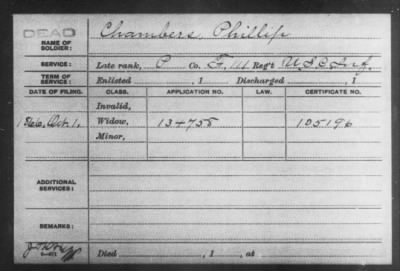 DEAD
NAME OF SOLDIER: Chambers, Phillip
SERVICE: Late rank, P Co. F, 111 Reg't U.S.C. Inf.
TERM OF SERVICE: Enlisted , 1 Discharged , 1
DATE OF FILING. CLASS. APPLICATION NO. LAW. CERTIFICATE NO.
Invalid,
Oct. 1, Widow, 134758 105196
Minor,
ADDITIONAL SERVICES:
REMARKS:
Died , 1 , at